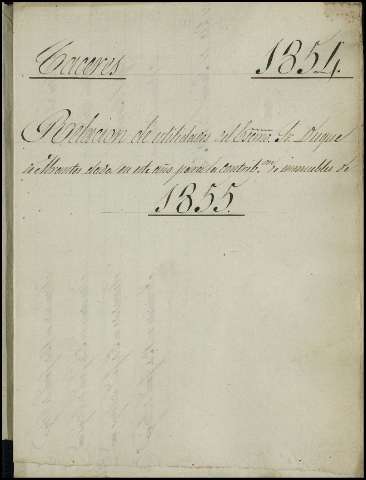 Caceres 1854.
Relacion de utilidades del Excmo. Sr. Duque
de Abrantes dada en este año para la contrib.on de inmuebles de
1855.